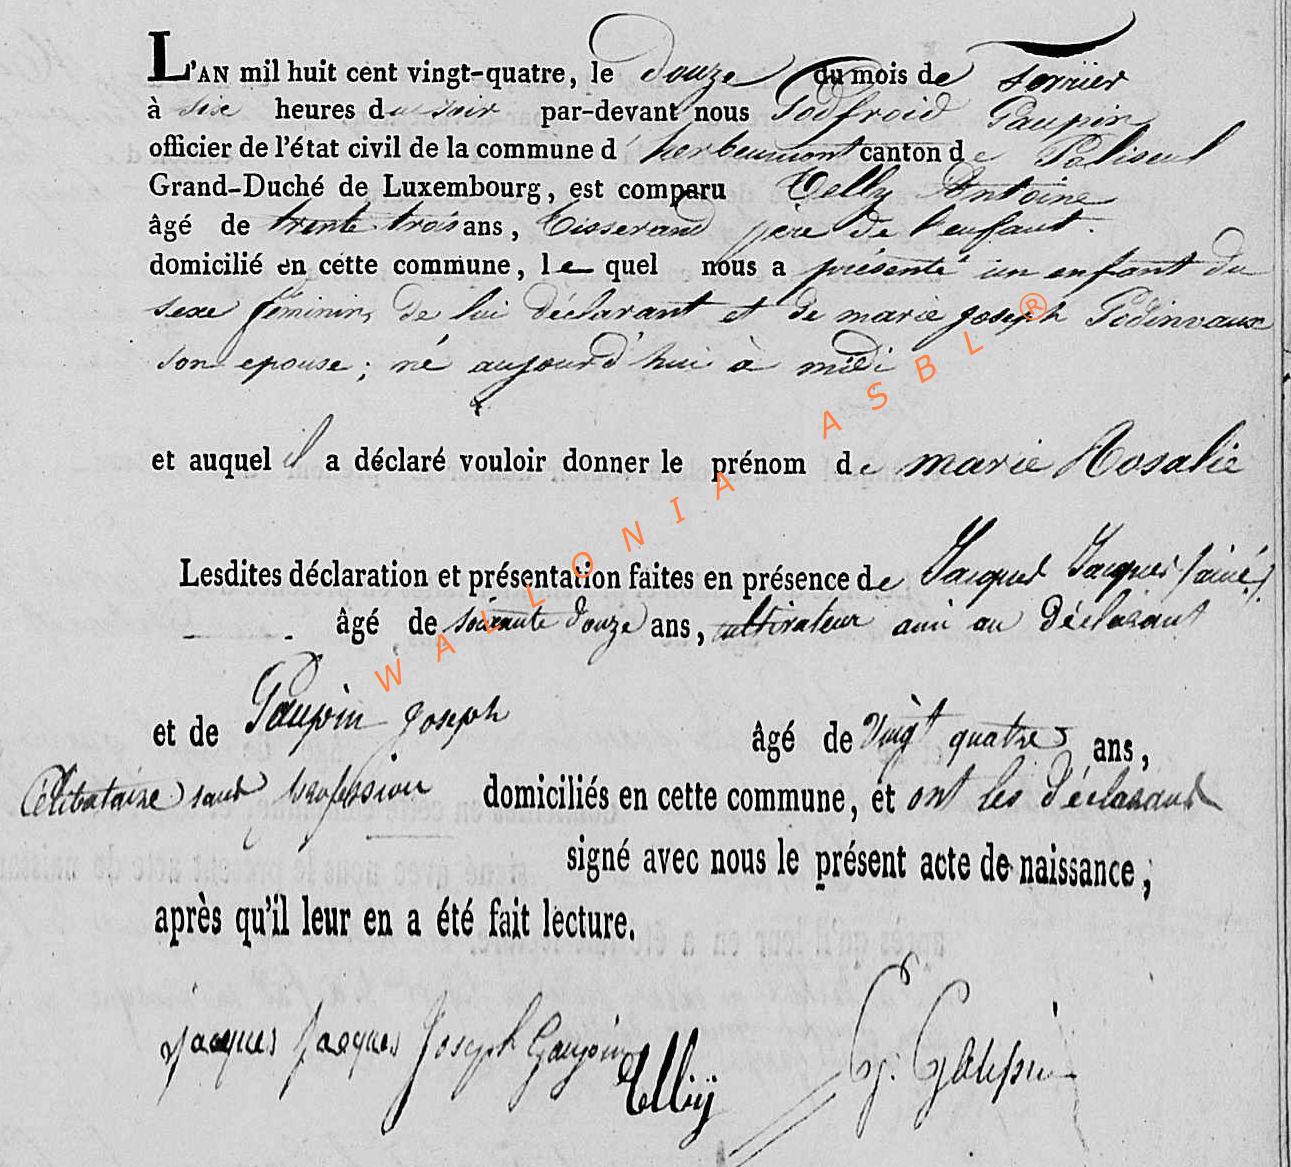 L'AN mil huit cent vingt-quatre, le douze du mois de
à six heures du soir par-devant nous Godfroid Gaupin
officier de l'état civil de la commune d'herbeumont canton de Paliseul
Grand-Duché de Luxembourg, est comparu Antoine
âgé de trente trois ans, tisserand père de l'enfant.
domicilié en cette commune, le quel nous a présenté un enfant du
sexe féminin, de lui déclarant et de marie joseph Godinvaux
son epouse; né aujourd'hui à midi
et auquel il a déclaré vouloir donner le prénom de marie Rosalie
Lesdites déclaration et présentation faites en présence de Jacques Jacques (ainé)
âgé de soixante douze ans, cultivateur ami au déclarant
et de Gaupin joseph âgé de vingt quatre ans,
Célibataire sans profession domiciliés en cette commune, et ont les déclarants
signé avec nous le présent acte de naissance,
après qu'il leur en a été fait lecture.
jacques jacques Joseph Gaupin G. Gaupin
WALLONIA ASBL ®